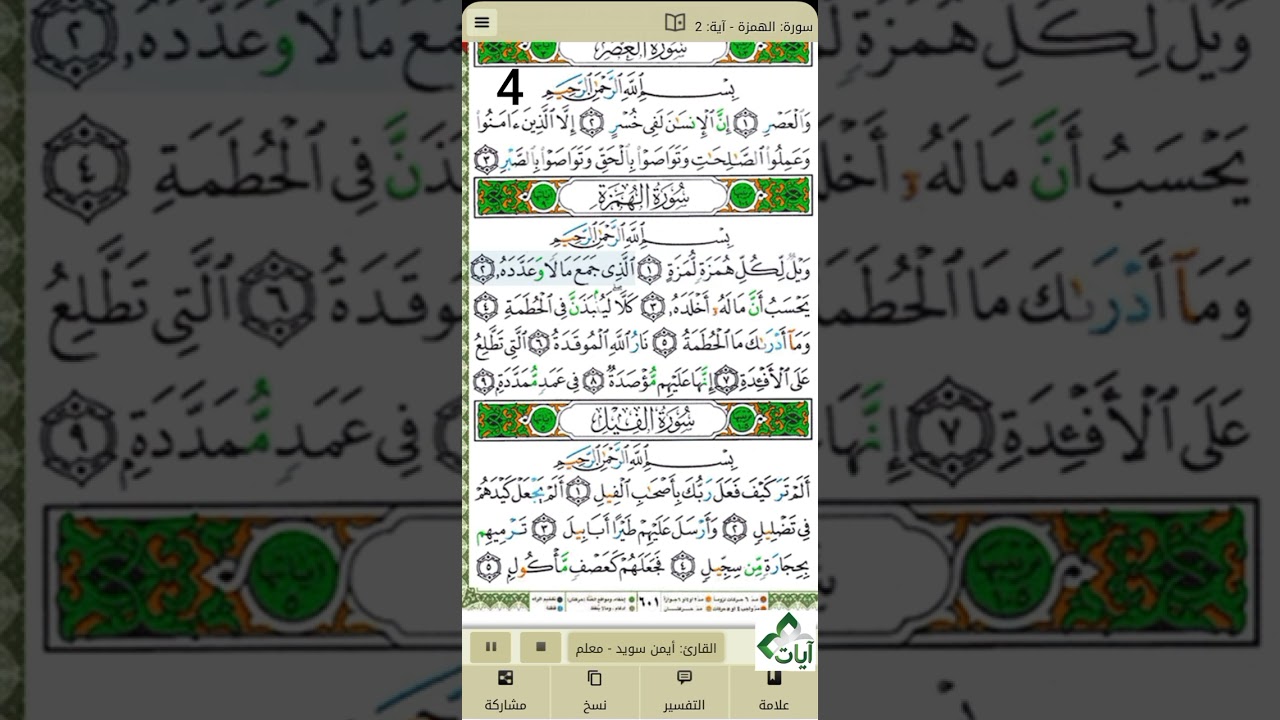 سورة: الهمزة - آية: 2
سُورَةُ العَصْرِ
4
بِسْمِ اللَّهِ الرَّحْمَٰنِ الرَّحِيمِ
وَالْعَصْرِ ۝١ إِنَّ الْإِنسَٰنَ لَفِى خُسْرٍ ۝٢ إِلَّا الَّذِينَ ءَامَنُوا۟
وَعَمِلُوا۟ الصَّٰلِحَٰتِ وَتَوَاصَوْا۟ بِالْحَقِّ وَتَوَاصَوْا۟ بِالصَّبْرِ ۝٣
سُورَةُ الهُمَزَةِ
بِسْمِ اللَّهِ الرَّحْمَٰنِ الرَّحِيمِ
وَيْلٌ لِّكُلِّ هُمَزَةٍ لُّمَزَةٍ ۝١ الَّذِى جَمَعَ مَالًا وَعَدَّدَهُۥ ۝٢
يَحْسَبُ أَنَّ مَالَهُۥٓ أَخْلَدَهُۥ ۝٣ كَلَّا ۖ لَيُنۢبَذَنَّ فِى الْحُطَمَةِ ۝٤
وَمَآ أَدْرَىٰكَ مَا الْحُطَمَةُ ۝٥ نَارُ اللَّهِ الْمُوقَدَةُ ۝٦ الَّتِى تَطَّلِعُ
عَلَى الْأَفْـِٔدَةِ ۝٧ إِنَّهَا عَلَيْهِم مُّؤْصَدَةٌ ۝٨ فِى عَمَدٍ مُّمَدَّدَةٍۭ ۝٩
سُورَةُ الفِيلِ
بِسْمِ اللَّهِ الرَّحْمَٰنِ الرَّحِيمِ
أَلَمْ تَرَ كَيْفَ فَعَلَ رَبُّكَ بِأَصْحَٰبِ الْفِيلِ ۝١ أَلَمْ يَجْعَلْ كَيْدَهُمْ
فِى تَضْلِيلٍ ۝٢ وَأَرْسَلَ عَلَيْهِمْ طَيْرًا أَبَابِيلَ ۝٣ تَرْمِيهِم
بِحِجَارَةٍ مِّن سِجِّيلٍ ۝٤ فَجَعَلَهُمْ كَعَصْفٍ مَّأْكُولٍۭ ۝٥
٦٠١
القارئ: أيمن سويد - معلم
آيات
علامة
التفسير
نسخ
مشاركة